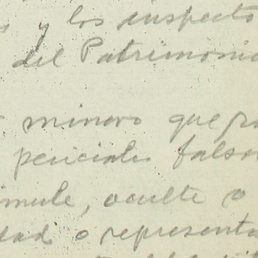 y los inspecto
del Patrimonio
minero que pa
periciales falso
imule, oculte o
dad o representa